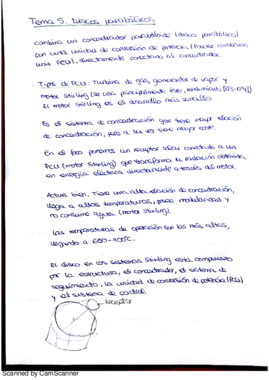 Tema 5. Discos parabólicos.
Combina un concentrador paraboloide (disco parabólico)
con una unidad de conversión de potencia (Power conversion
unit PCU), directamente conectado al concentrador.
Tipos de PCU: Turbina de gas, generador de vapor y
motor Stirling (se usa principalmente éste, rendimiento
El motor Stirling es el desarrollo más sencillo
Es el sistema de concentración que tiene mayor relación
de concentración, pero a su vez tiene mayor coste.
En el foco ponemos un receptor conectado a un
PCU (motor Stirling) que transforma la radiación obtenida
en energía eléctrica directamente a través del motor.
Actua bien, Tiene una alta relación de concentración,
llega a altas temperaturas, posee modularidad y
no consume agua (motor Stirling)
Las temperaturas de operación son las más altas,
llegando a
El disco en los sistemas Stirling esta compuesto
por la estructura, el concentrador, el sistema de
seguimiento, la unidad de conversión de potencia (PCU)
y el sistema de control.
receptor
Scanned by CamScanner